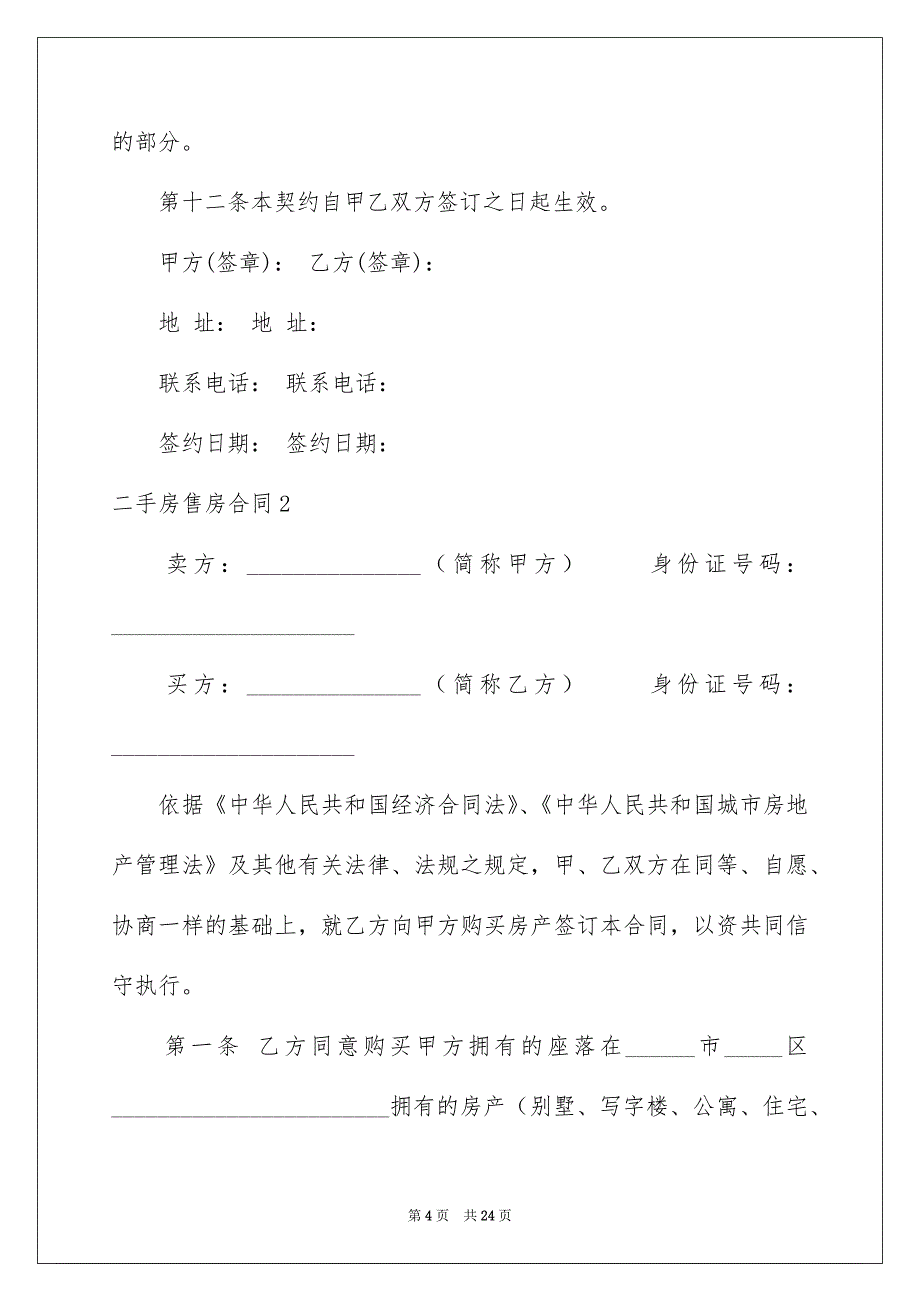 的部分。
第十二条本契约自甲乙双方签订之日起生效。
甲方(签章)： 乙方(签章)：
地 址： 地 址：
联系电话： 联系电话：
签约日期： 签约日期：
二手房售房合同2
卖方：_______________（简称甲方） 身份证号码：
_____________________
买方：_______________（简称乙方） 身份证号码：
_____________________
依据《中华人民共和国经济合同法》、《中华人民共和国城市房地
产管理法》及其他有关法律、法规之规定，甲、乙双方在同等、自愿、
协商一样的基础上，就乙方向甲方购买房产签订本合同，以资共同信
守执行。
第一条 乙方同意购买甲方拥有的座落在______市_____区
________________________拥有的房产（别墅、写字楼、公寓、住宅、
第4页 共24页